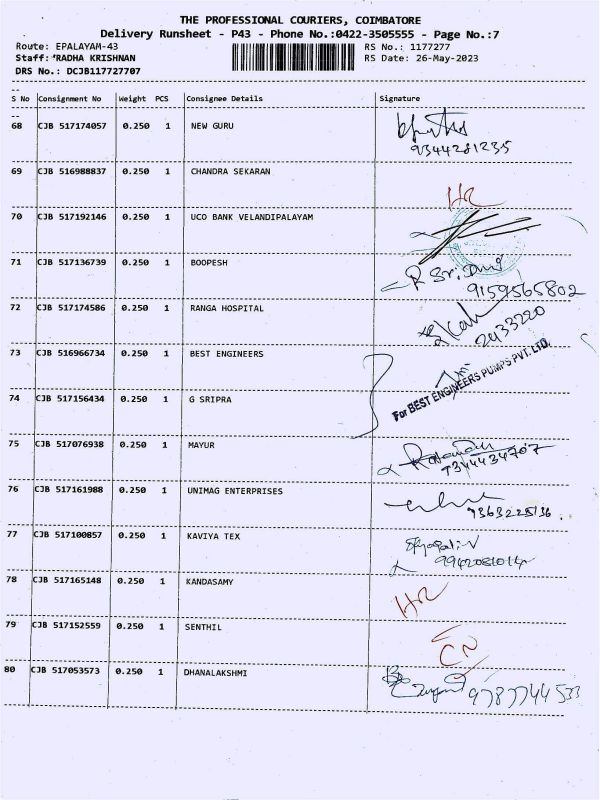 THE PROFESSIONAL COURIERS, COIMBATORE
Delivery Runsheet - P43 - Phone No.:0422-3505555 - Page No.:7
Route: EPALAYAM-43 RS No.: 1177277
Staff: RADHA KRISHNAN RS Date: 26-May-2023
DRS No.: DCJB117727707
S No Consignment No Weight PCS Consignee Details Signature
68 CJB 517174057 0.250 1 NEW GURU
9344281235
69 CJB 516988837 0.250 1 CHANDRA SEKARAN
HR
70 CJB 517192146 0.250 1 UCO BANK VELANDIPALAYAM
71 CJB 517136739 0.250 1 BOOPESH
9159565802
72 CJB 517174586 0.250 1 RANGA HOSPITAL
2433220
73 CJB 516966734 0.250 1 BEST ENGINEERS
For BEST ENGINEERS PUMPS PVT. LTD.
74 CJB 517156434 0.250 1 G SRIPRA
75 CJB 517076938 0.250 1 MAYUR
7344434707
76 CJB 517161988 0.250 1 UNIMAG ENTERPRISES
9363225136
77 CJB 517100857 0.250 1 KAVIYA TEX
78 CJB 517165148 0.250 1 KANDASAMY
HR
79 CJB 517152559 0.250 1 SENTHIL
CN
80 CJB 517053573 0.250 1 DHANALAKSHMI
9787744533